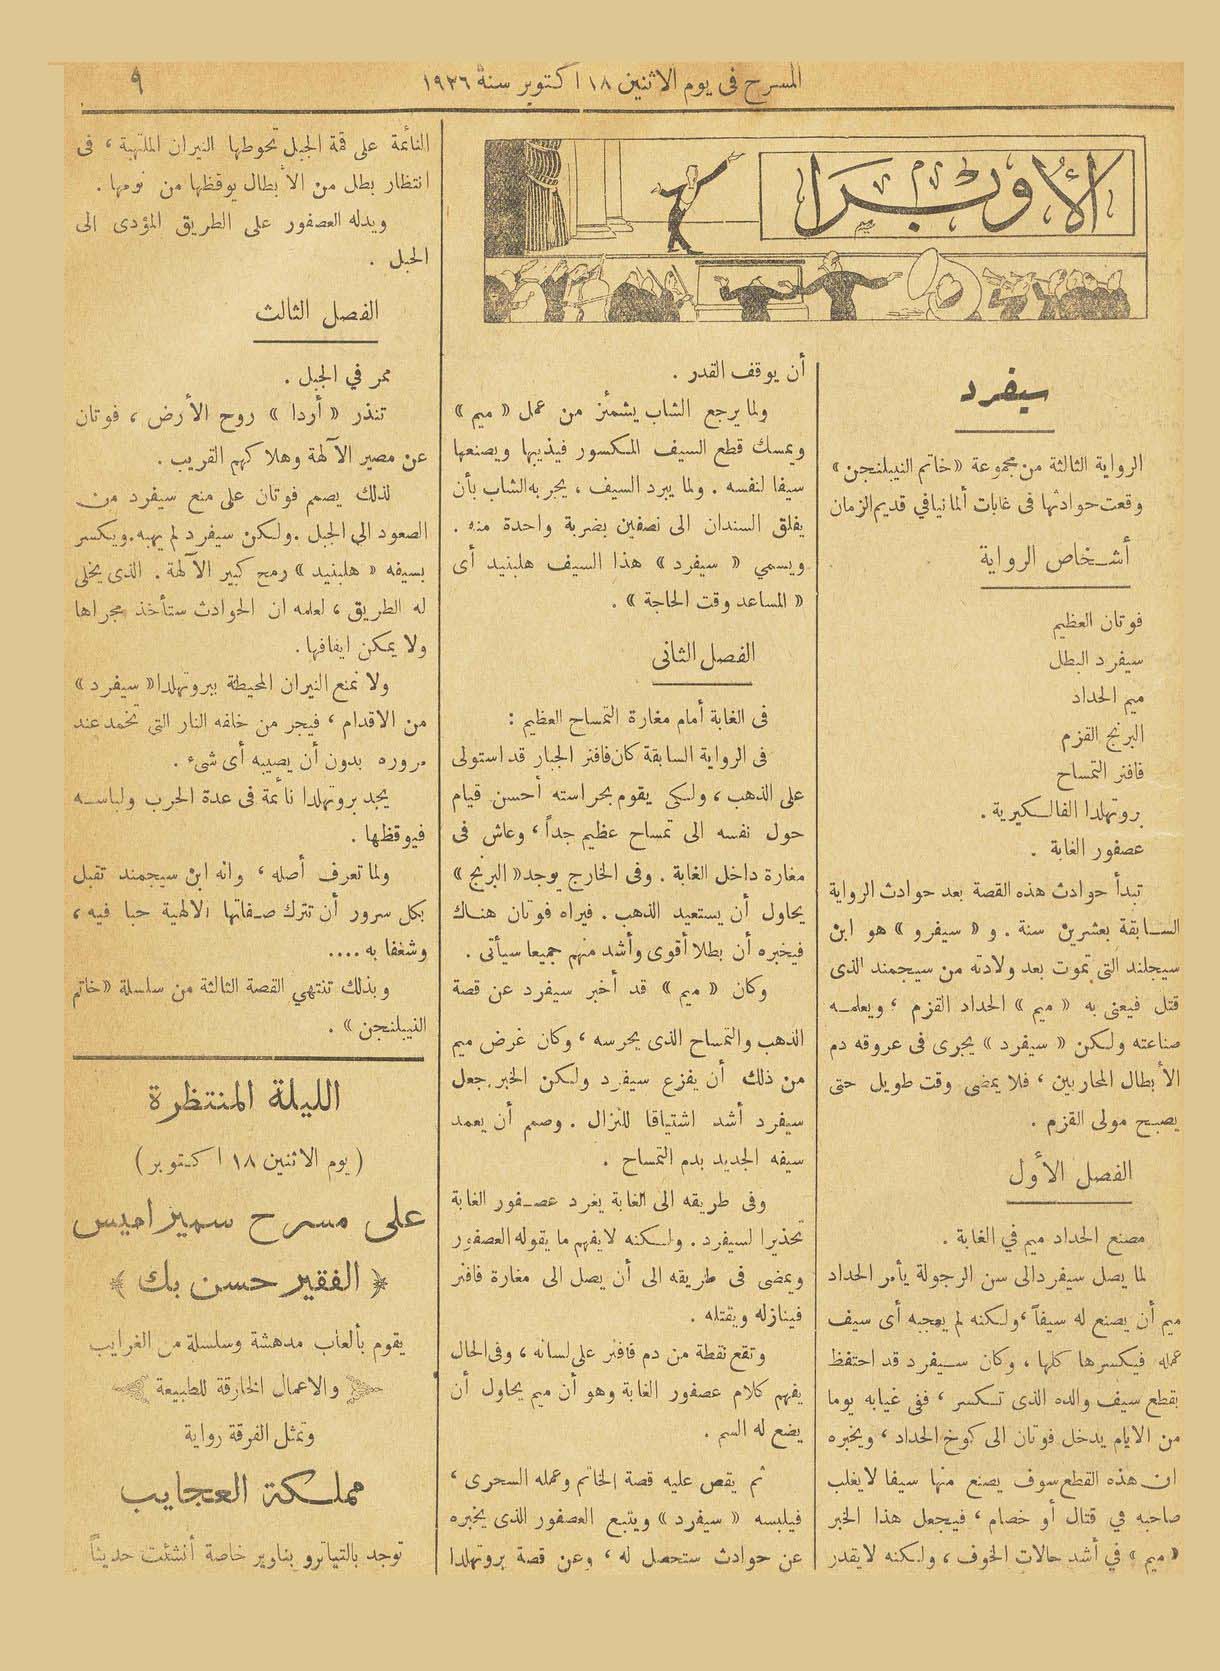 المسرح فى يوم الاثنين ١٨ اكتوبر سنة ١٩٢٦
٩
الأوبرا
سيفرد
الرواية الثالثة من مجموعة «خاتم النيبلنجن»
وقعت حوادثها فى غابات ألمانيا في قديم الزمان
أشخاص الرواية
فوتان العظيم
سيفرد البطل
ميم الحداد
البرنج القزم
فافنر التمساح
بروتهلدا الفالكيرية .
عصفور الغابة .
تبدأ حوادث هذه القصة بعد حوادث الرواية
السابقة بعشرين سنة . و « سيفرو » هو ابن
سيجلند التى تموت بعد ولادته من سيجمند الذى
قتل فيعنى به « ميم » الحداد القزم ، ويعلمه
صناعته ولكن « سيفرد » يجرى فى عروقه دم
الأبطال المحاربين ، فلا يمضى وقت طويل حتى
يصبح مولى القزم .
الفصل الأول
مصنع الحداد ميم في الغابة .
لما يصل سيفرد الى سن الرجولة يأمر الحداد
ميم أن يصنع له سيفاً ، ولكنه لم يعجبه أى سيف
عمله فيكسرها كلها ، وكان سيفرد قد احتفظ
بقطع سيف والده الذى تكسر ، ففى غيابه يوما
من الايام يدخل فوتان الى كوخ الحداد ، ويخبره
ان هذه القطع سوف يصنع منها سيفا لا يغلب
صاحبه في قتال أو خصام ، فيجعل هذا الخبر
« ميم » في أشد حالات الخوف ، ولكنه لا يقدر
أن يوقف القدر .
ولما يرجع الشاب يشمئز من عمل « ميم »
ويمسك قطع السيف المكسور فيذيبها ويصنعها
سيفا لنفسه . ولما يبرد السيف ، يجربه الشاب بأن
يفلق السندان الى نصفين بضربة واحدة منه .
ويسمي « سيفرد » هذا السيف هلبنيد أى
« المساعد وقت الحاجة » .
الفصل الثانى
فى الغابة أمام مغارة التمساح العظيم :
فى الرواية السابقة كان فافنر الجبار قد استولى
على الذهب ، ولكى يقوم بحراسته أحسن قيام
حول نفسه الى تمساح عظيم جداً ، وعاش فى
مغارة داخل الغابة . وفى الخارج يوجد « البرنج »
يحاول أن يستعيد الذهب . فيراه فوتان هناك
فيخبره أن بطلا أقوى وأشد منهم جميعا سيأتى .
وكان « ميم » قد أخبر سيفرد عن قصة
الذهب والتمساح الذى يحرسه ، وكان غرض ميم
من ذلك أن يفزع سيفرد ولكن الخبر جعل
سيفرد أشد اشتياقا للنزال . وصمم أن يعمد
سيفه الجديد بدم التمساح .
وفى طريقه الى الغابة يغرد عصفور الغابة
تحذيرا لسيفرد . ولكنه لا يفهم ما يقوله العصفور
ويمضى فى طريقه الى أن يصل الى مغارة فافنر
فينازله ويقتله .
وتقع نقطة من دم فافنر على لسانه ، وفى الحال
يفهم كلام عصفور الغابة وهو أن ميم يحاول أن
يضع له السم .
ثم يقص عليه قصة الخاتم وعمله السحرى ،
فيلبسه « سيفرد » ويتبع العصفور الذى يخبره
عن حوادث ستحصل له ، وعن قصة بروتهلدا
النائمة على قمة الجبل تحوطها النيران الملتهبة ، فى
انتظار بطل من الأبطال يوقظها من نومها .
ويدله العصفور على الطريق المؤدى الى
الجبل .
الفصل الثالث
ممر في الجبل .
تنذر « أردا » روح الأرض ، فوتان
عن مصير الآلهة وهلاكهم القريب .
لذلك يصمم فوتان على منع سيفرد من
الصعود الي الجبل . ولكن سيفرد لم يهبه . ويكسر
بسيفه « هلبنيد » رمح كبير الآلهة . الذى يخلى
له الطريق ، لعلمه ان الحوادث ستأخذ مجراها
ولا يمكن ايفافها .
ولا تمنع النيران المحيطة ببروتهلدا « سيفرد »
من الاقدام ، فيجر من خلفه النار التى تخمد عند
مروره بدون أن يصيبه أى شىء .
يجد بروتهلدا نائمة فى عدة الحرب ولباسه
فيوقظها .
ولما تعرف أصله ، وانه ابن سيجمند تقبل
بكل سرور أن تترك صفاتها الالهية حبا فيه ،
وشغفا به ....
وبذلك تنتهي القصة الثالثة من سلسلة « خاتم
النيبلنجن » .
الليلة المنتظرة
( يوم الاثنين ١٨ اكتوبر )
على مسرح سميراميس
﴿ الفقير حسن بك ﴾
يقوم بألعاب مدهشة وسلسلة من الغرايب
والاعمال الخارقة للطبيعة
وتمثل الفرقة رواية
مملكة العجايب
توجد بالتياترو بناوير خاصة أنشئت حديثاً